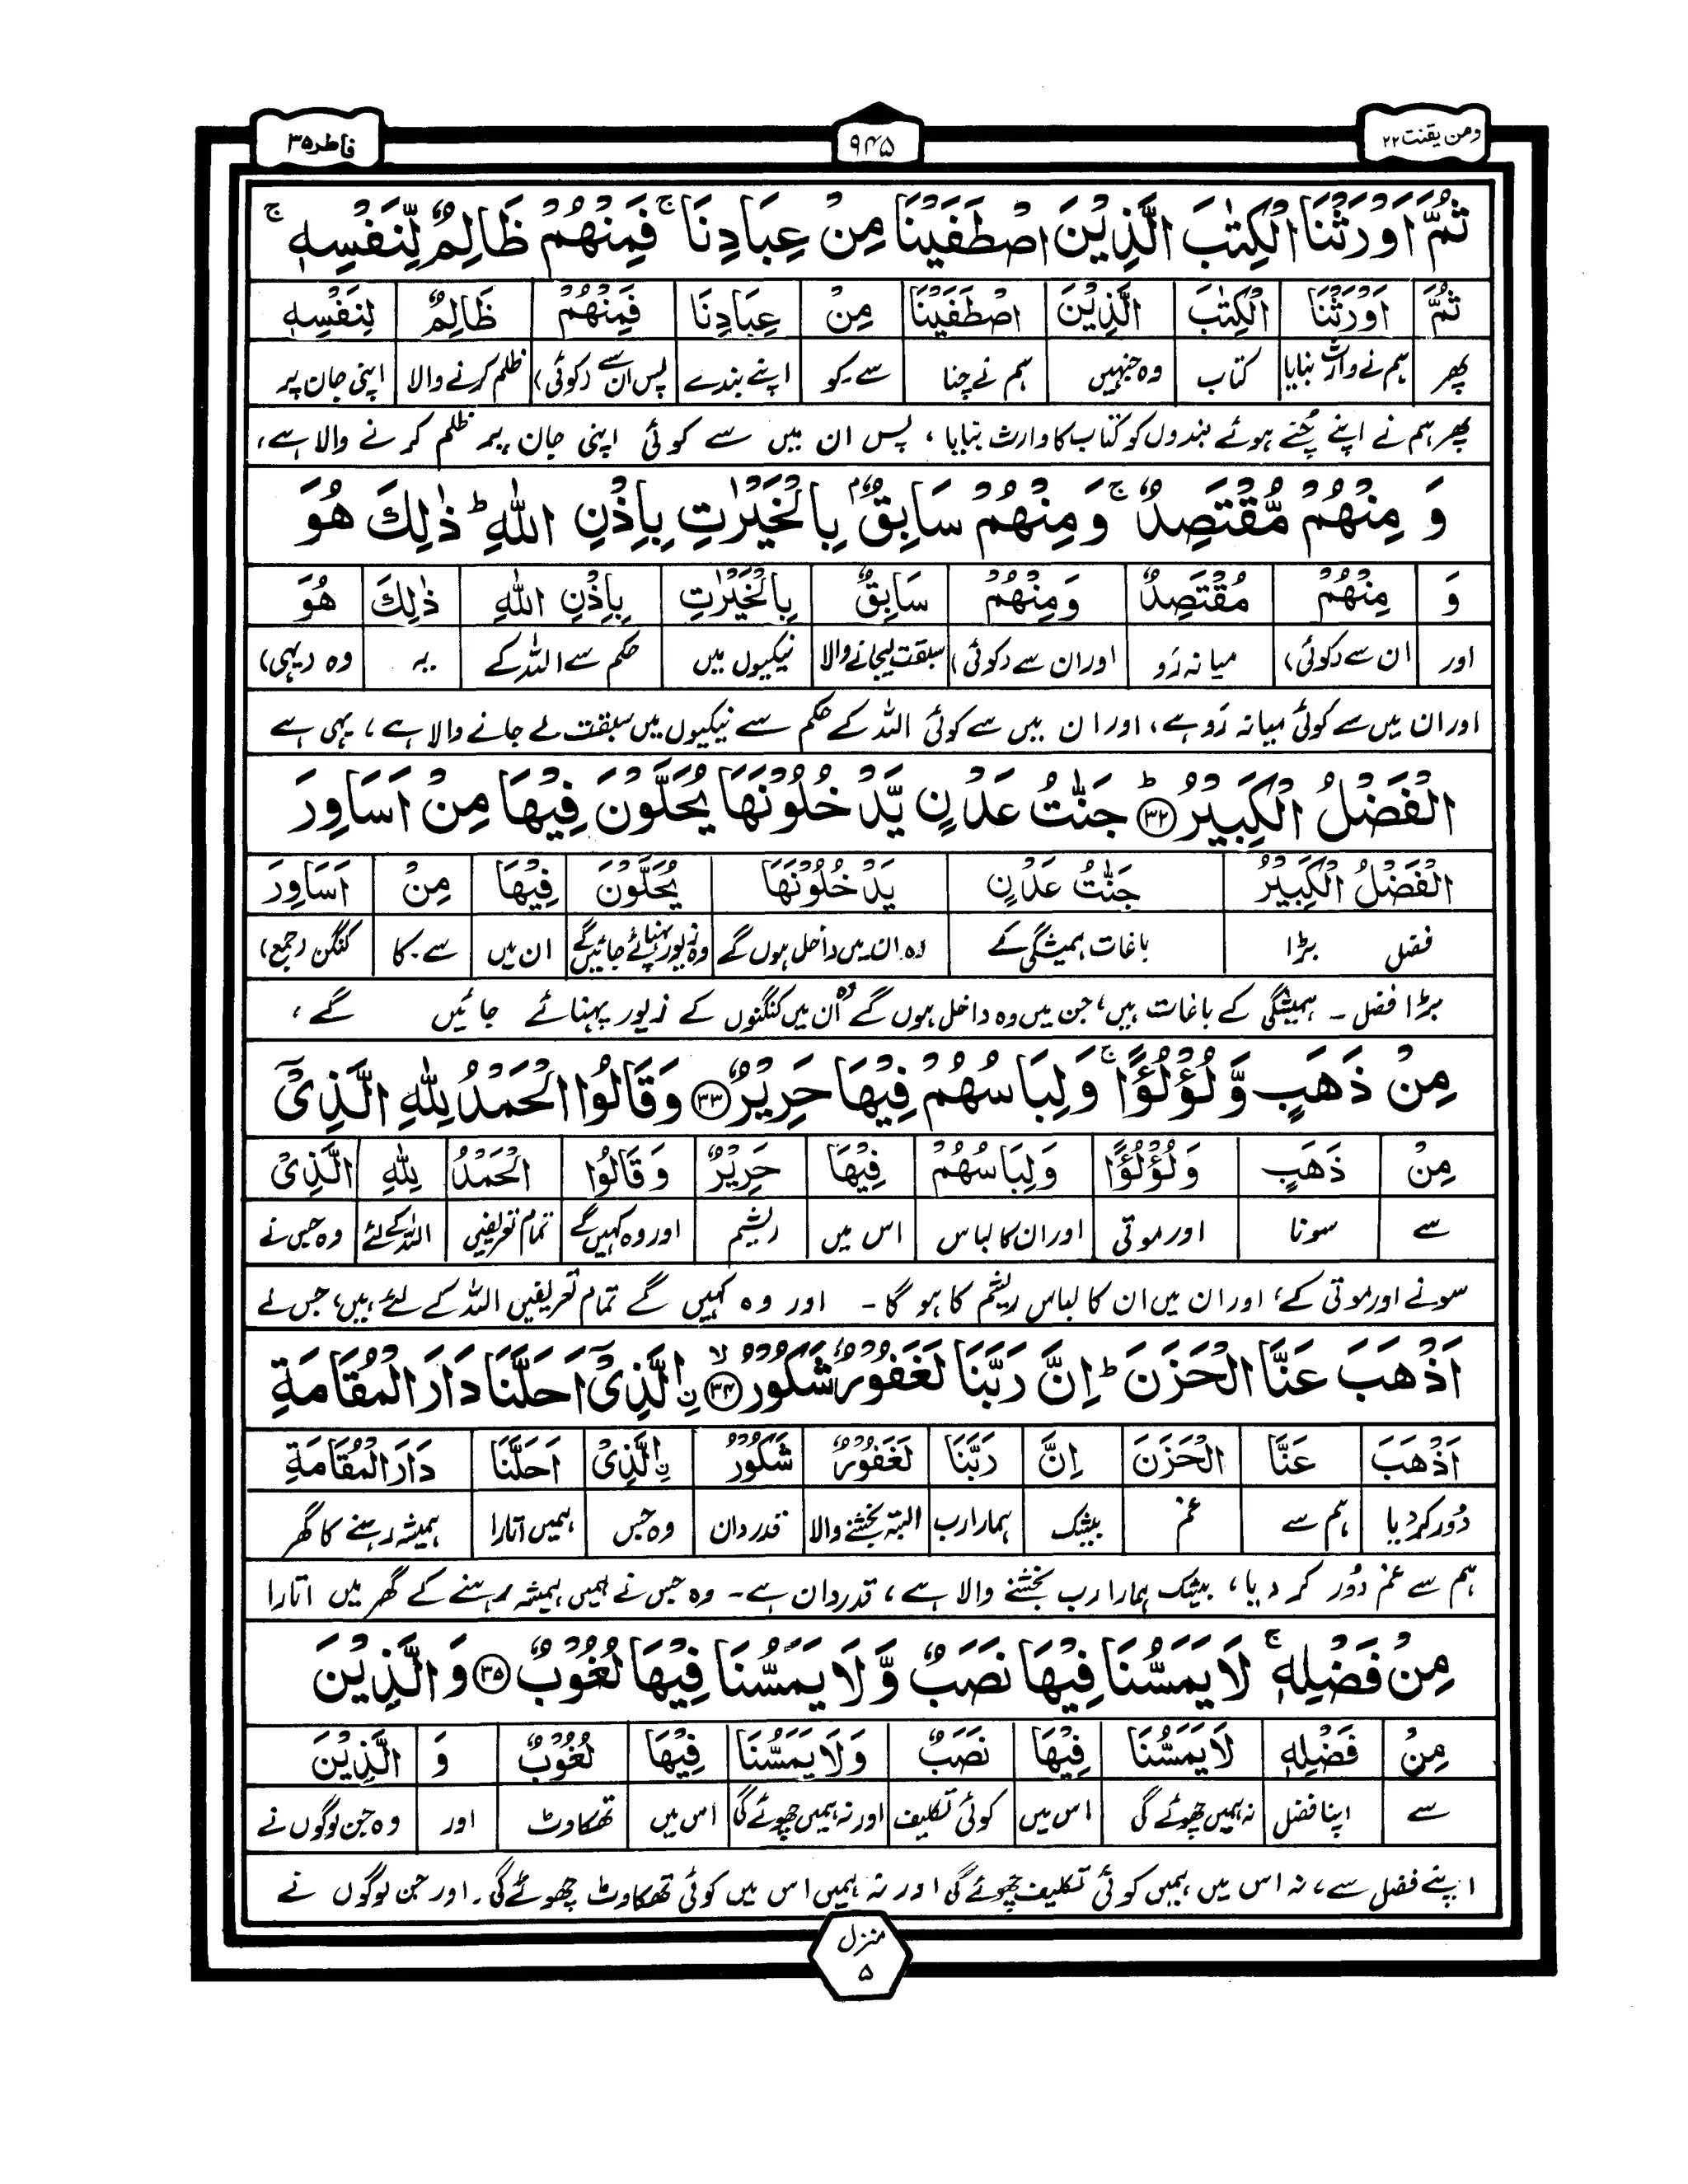 ومن یقنت ۲۲
۹۴۵
فاطر ۳۵
ثُمَّ اَوۡرَثۡنَا الۡكِتٰبَ الَّذِيۡنَ اصۡطَفَيۡنَا مِنۡ عِبَادِنَا ۚ فَمِنۡهُمۡ ظَالِمٌ لِّنَفۡسِهٖ ۚ
ثُمَّ اَوۡرَثۡنَا الۡكِتٰبَ الَّذِيۡنَ اصۡطَفَيۡنَا مِنۡ عِبَادِنَا فَمِنۡهُمۡ ظَالِمٌ لِنَفۡسِهٖ
پھر ہم نے وارث بنایا کتاب وہ جنہیں ہم نے چنا سے۔کو اپنے بندے پس ان سے (کوئی) ظلم کرنے والا اپنی جان پر
پھر ہم نے اپنے چُنے ہوئے بندوں کو کتاب کا وارث بنایا، پس ان میں سے کوئی اپنی جان پر ظلم کرنے والا ہے،
وَ مِنۡهُمۡ مُّقۡتَصِدٌ ۚ وَمِنۡهُمۡ سَابِقٌۢ بِالۡخَيۡرٰتِ بِاِذۡنِ اللّٰهِ ؕ ذٰلِكَ هُوَ
وَ مِنۡهُمۡ مُقۡتَصِدٌ وَمِنۡهُمۡ سَابِقٌ بِالۡخَيۡرٰتِ بِاِذۡنِ اللّٰهِ ذٰلِكَ هُوَ
اور ان سے (کوئی) میانہ رَو اور ان سے (کوئی) سبقت لیجانے والا نیکیوں میں حکم سے اللہ کے یہ وہ (یہی)
اور ان میں سے کوئی میانہ رَو ہے، اور ان میں سے کوئی اللہ کے حکم سے نیکیوں میں سبقت لے جانے والا ہے، یہی ہے
الۡفَضۡلُ الۡكَبِيۡرُ ؕ ﴿۳۲﴾ جَنّٰتُ عَدۡنٍ يَّدۡخُلُوۡنَهَا يُحَلَّوۡنَ فِيۡهَا مِنۡ اَسَاوِرَ
الۡفَضۡلُ الۡكَبِيۡرُ جَنّٰتُ عَدۡنٍ يَدۡخُلُوۡنَهَا يُحَلَّوۡنَ فِيۡهَا مِنۡ اَسَاوِرَ
فضل بڑا باغات ہمیشگی کے وہ ان میں داخل ہوں گے وہ زیور پہنائے جائیں گے ان میں سے۔کا کنگن (جمع)
بڑا فضل ۔ ہمیشگی کے باغات ہیں، جن میں وہ داخل ہوں گے وہ اُن میں کنگنوں کے زیور پہنائے جائیں گے،
مِنۡ ذَهَبٍ وَّلُؤۡلُؤًا ۚ وَلِبَاسُهُمۡ فِيۡهَا حَرِيۡرٌ ﴿۳۳﴾ وَقَالُوا الۡحَمۡدُ لِلّٰهِ الَّذِىۡۤ
مِنۡ ذَهَبٍ وَلُؤۡلُؤًا وَلِبَاسُهُمۡ فِيۡهَا حَرِيۡرٌ وَقَالُوا الۡحَمۡدُ لِلّٰهِ الَّذِىۡ
سے سونا اور موتی اور ان کا لباس اس میں ریشم اور وہ کہیں گے تمام تعریفیں اللہ کے لئے وہ جس نے
سونے اور موتی کے، اور ان میں ان کا لباس ریشم کا ہو گا ۔ اور وہ کہیں گے تمام تعریفیں اللہ کے لئے ہیں، جس نے
اَذۡهَبَ عَنَّا الۡحَزَنَ ؕ اِنَّ رَبَّنَا لَغَفُوۡرٌ شَكُوۡرُ ۙ ﴿۳۴﴾ ۨالَّذِىۡۤ اَحَلَّنَا دَارَ الۡمُقَامَةِ
اَذۡهَبَ عَنَّا الۡحَزَنَ اِنَّ رَبَّنَا لَغَفُوۡرٌ شَكُوۡرُ ۨالَّذِىۡ اَحَلَّنَا دَارَ الۡمُقَامَةِ
دُور کر دیا ہم سے غم بیشک ہمارا رب البتہ بخشنے والا قدردان وہ جس ہمیں اتارا ہمیشہ رہنے کا گھر
ہم سے غم دُور کر دیا، بیشک ہمارا رب بخشنے والا ہے، قدردان ہے ۔ وہ جس نے ہمیں ہمیشہ رہنے کے گھر میں اتارا
مِنۡ فَضۡلِهٖ ۚ لَا يَمَسُّنَا فِيۡهَا نَصَبٌ وَّلَا يَمَسُّنَا فِيۡهَا لُغُوۡبٌ ﴿۳۵﴾ وَالَّذِيۡنَ
مِنۡ فَضۡلِهٖ لَا يَمَسُّنَا فِيۡهَا نَصَبٌ وَلَا يَمَسُّنَا فِيۡهَا لُغُوۡبٌ وَ الَّذِيۡنَ
سے اپنا فضل نہ ہمیں چھوئے گی اس میں کوئی تکلیف اور نہ ہمیں چھوئے گی اس میں تھکاوٹ اور وہ جن لوگوں نے
اپنے فضل سے، نہ اس میں ہمیں کوئی تکلیف چھوئے گی اور نہ ہمیں اس میں کوئی تھکاوٹ چھوئے گی۔ اور جن لوگوں نے
منزل
۵